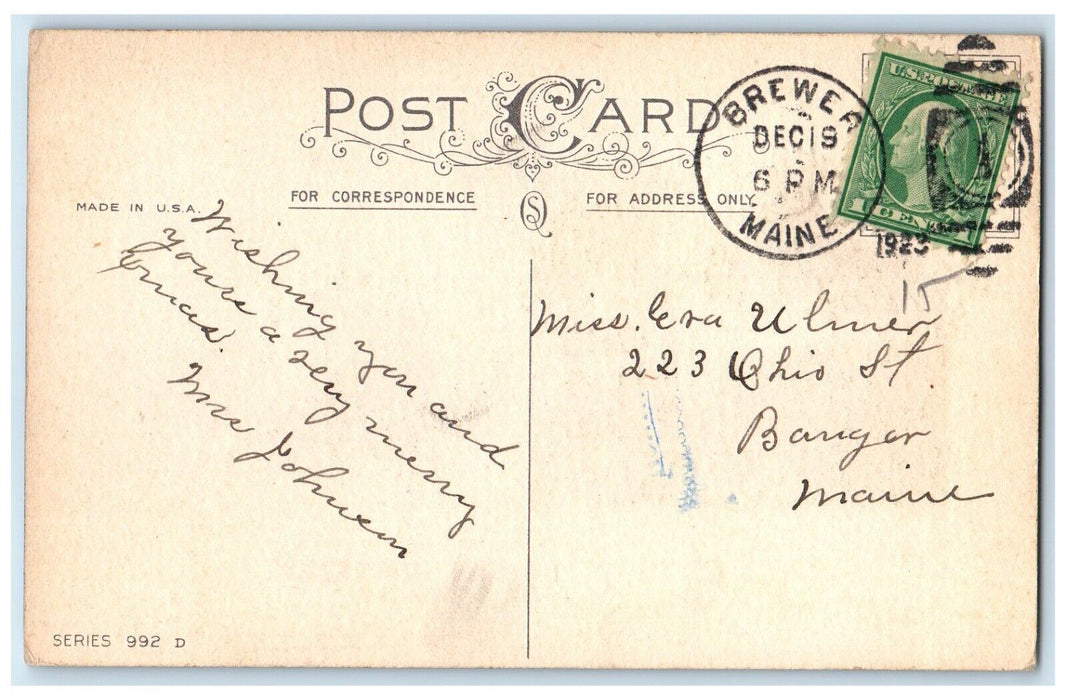 POST CARD
FOR CORRESPONDENCE
FOR ADDRESS ONLY
MADE IN U.S.A.
BREWER
DEC 19
6 PM
MAINE
1923
U.S. POSTAGE
1 CENT
15
Wishing you and
yours a very merry
Xmas.
Mrs Johnson
Miss. Eva Ulmer
223 Ohio St
Bangor
Maine
SERIES 992 D